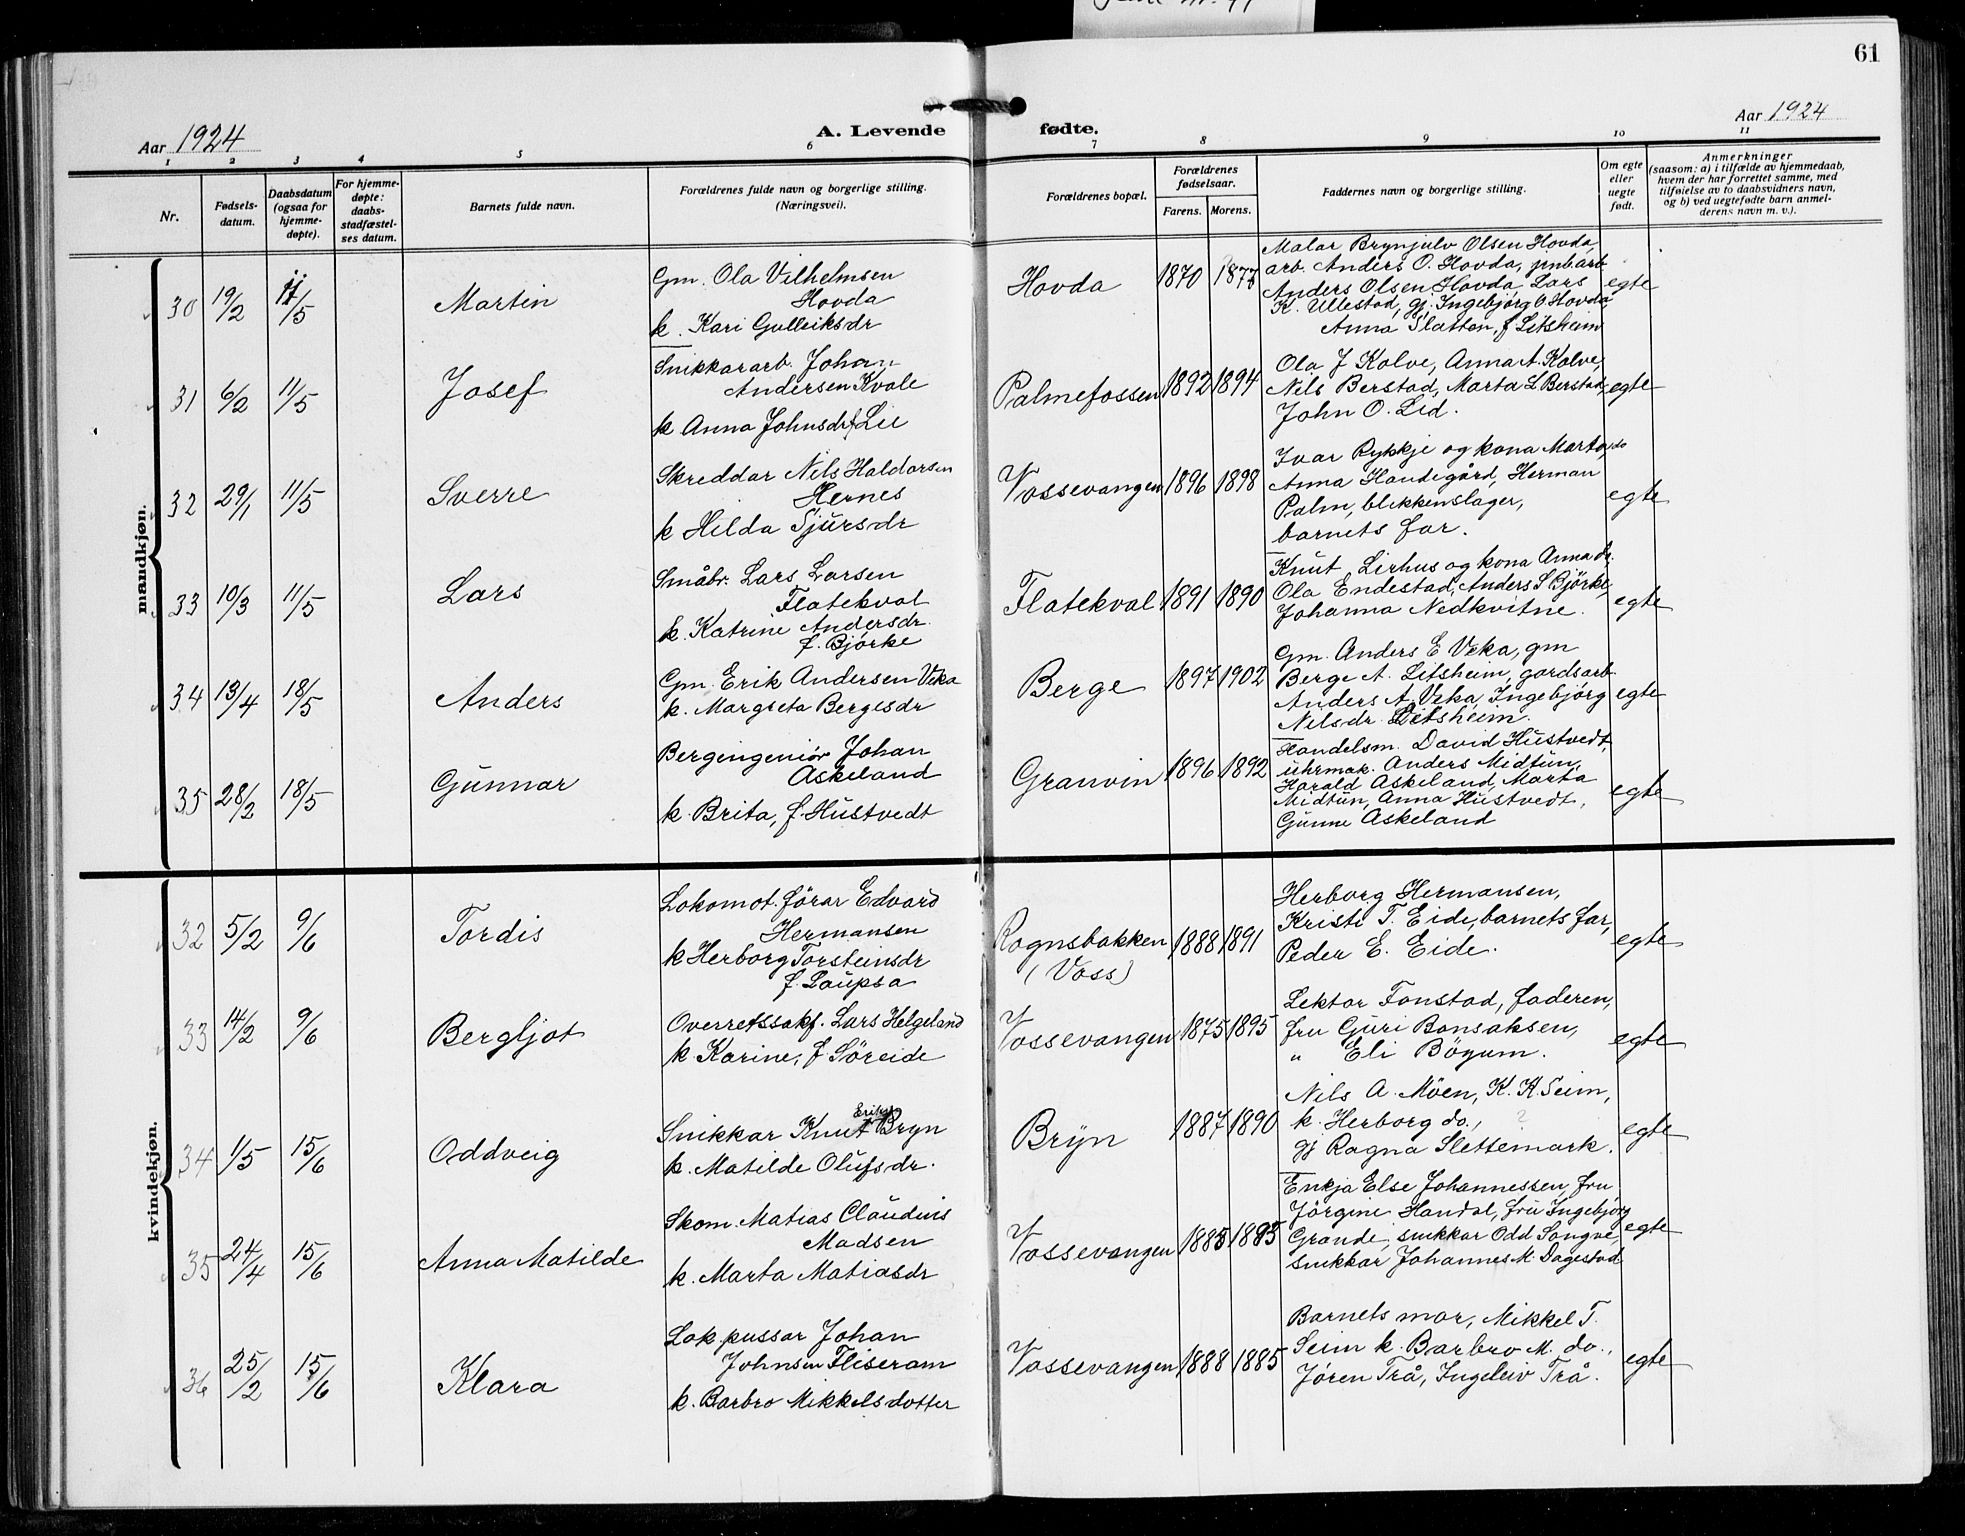 61
Aar 1924
A. Levende fødte.
Aar 1924
1 2 3 4 5 6 7 8 9 10 11
Nr.
Fødsels-
datum.
Daabsdatum
(ogsaa for
hjemme-
døpte).
For hjemme-
døpte:
daabs-
stadfæstel-
ses datum.
Barnets fulde navn.
Forældrenes fulde navn og borgerlige stilling.
(Næringsvei).
Forældrenes bopæl.
Forældrenes
fødselsaar.
Farens. Morens.
Faddernes navn og borgerlige stilling.
Om egte
eller
uegte
født.
Anmerkninger
(saasom: a) i tilfælde av hjemmedaab,
hvem der har forrettet samme, med
tilføielse av to daabsvidners navn,
og b) ved uegtefødte barn anmel-
derens navn m. v.).
mandkjøn.
30 19/2 11/5 Martin
Gm. Ola Vilhelmsen
Hovda
k. Kari Gulleiksdr
Hovda 1870 1877
Malar Brynjulv Olsen Hovda,
arb. Anders O. Hovda, jnb.arb
Anders Olsen Hovda, Lars
K. Ullestad, gj. Ingebjørg O Hovda,
Anna Slatten, f Litsheim
egte
31 6/2 11/5 Josef
Snikkararb. Johan
Andersen Kvale
k Anna Johnsdr f Lie
Palmefossen 1892 1894
Ola J Kolve, Anna A. Kolve,
Nils Berstad, Marta L Berstad,
John O. Lid.
egte
32 29/1 11/5 Sverre
Skreddar Nils Haldorsen
Hernes
k Hilda Sjursdr
Vossevangen 1896 1898
Ivar Rykkje og kona Marta do
Anna Haudegård, Herman
Palm, blikkenslager,
barnets far.
egte
33 10/3 11/5 Lars
Småbr. Lars Larsen
Flatekval
k. Katrine Andersdr.
f. Bjørke
Flatekval 1891 1890
Knut Lirhus og kona Anna do.
Ola Endestad, Anders S Bjørke
Johanna Nedkvitne.
egte
34 13/4 18/5 Anders
Gm. Erik Andersen Veka
k. Margreta Bergesdr
Berge 1897 1902
Gm. Anders E Veka, gm
Berge A. Litsheim, gardsarb.
Anders A. Veka, Ingebjørg
Nilsdr. Litsheim.
egte
35 28/2 18/5 Gunnar
Bergingeniør Johan
Askeland
k. Brita, f. Hustvedt
Granvin 1896 1892
Handelsm. David Hustvedt,
uhrmak. Anders Midtun,
Harald Askeland, Marta
Midtun, Anna Hustvedt,
Gunne Askeland
egte
kvindekjøn.
32 5/2 9/6 Tordis
Lokomot.førar Edvard
Hermansen
k Herborg Torsteinsdr
f. Laupsa
Rognsbakken
(Voss)
1888 1891
Herborg Hermansen,
Kristi T. Eide, barnets far,
Peder E. Eide.
egte
33 14/2 9/6 Bergljot
Overretssakf. Lars Helgeland
k Karine, f Søreide
Vossevangen 1875 1895
Lektor Fonstad, faderen,
fru Guri Bonsaksen,
" Eli Bøyum.
egte
34 1/5 15/6 Oddveig
Snikkar Knut Eriks. Bryn
k. Matilde Olufsdr.
Bryn 1887 1890
Nils A. Möen, K. K. Seim,
k. Herborg do.,
gj Ragna Slettemark.
egte
35 24/4 15/6 Anna Matilde
Skom. Matias Claudius
Madsen
k. Marta Matiasdr
Vossevangen
Enkja Else Johannessen, fru
Jørgine Handal, fru Ingebjørg
Grande, snikkar Odd Songve,
snikkar Johannes M. Dagestad
egte
36 25/2 15/6 Klara
Lok.pussar Johan
Johnsen Fliseram
k. Barbro Mikkelsdotter
Vossevangen 1888 1885
Barnets mor, Mikkel T.
Seim k. Barbro M. do.,
Jøren Trå, Ingeleiv Trå.
egte